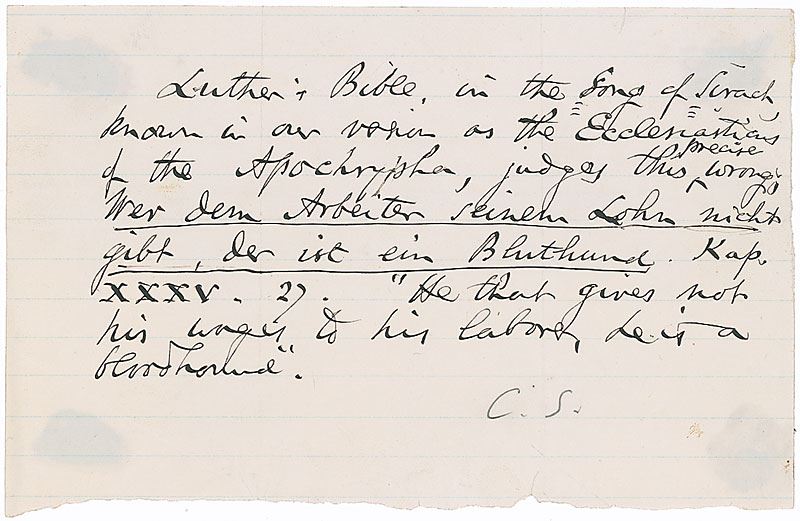 Luther's Bible, in the Song of Sirach,
known in our version as the Ecclesiasticus
precise
of the Apochrypha, judges this wrong:
Wer dem Arbeiter seinem Lohn nicht
gibt, der ist ein Bluthund. Kap.
XXXV. 27. "He that gives not
his wages to his laborer, he is a
bloodhound".
C. S.